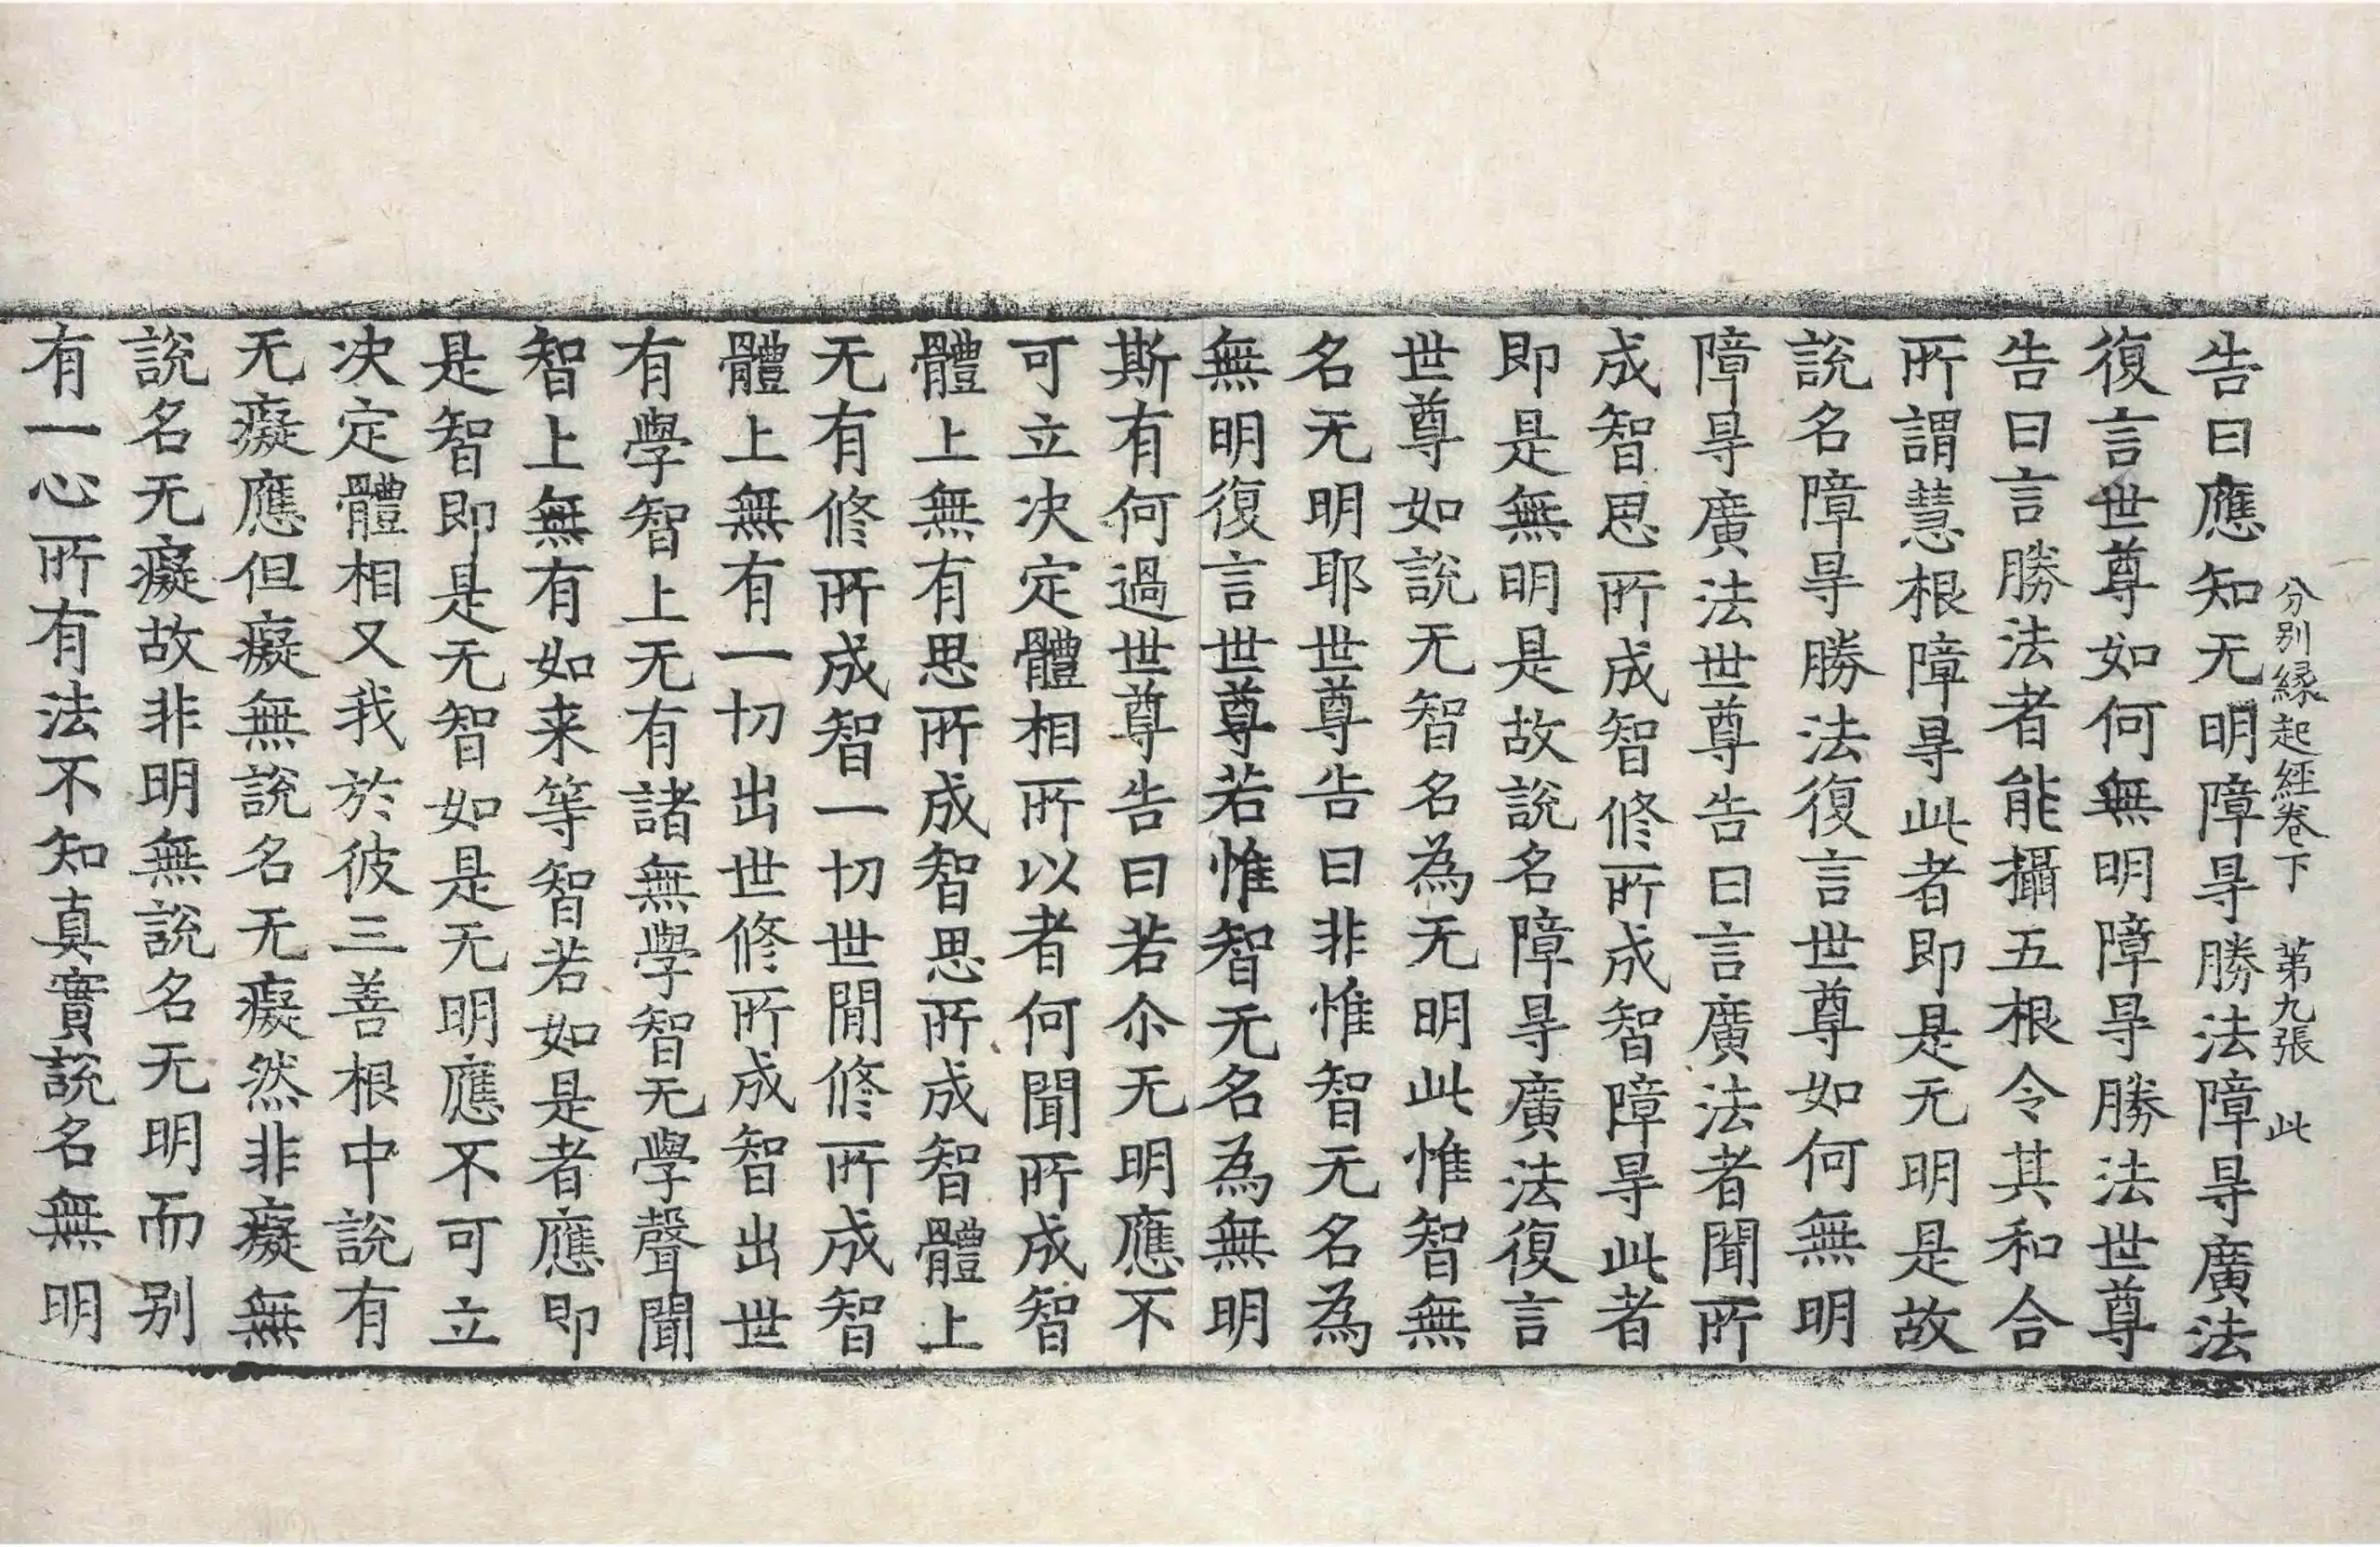 分别緣起經卷下 第九張 此
告曰應知无明障㝵勝法障㝵廣法
復言世尊如何無明障㝵勝法世尊
告曰言勝法者能攝五根令其和合
所謂慧根障㝵此者即是无明是故
說名障㝵勝法復言世尊如何無明
障㝵廣法世尊告曰言廣法者聞所
成智思所成智修所成智障㝵此者
即是無明是故說名障㝵廣法復言
世尊如說无智名為无明此惟智無
名无明耶世尊告曰非惟智无名為
無明復言世尊若惟智无名為無明
斯有何過世尊告曰若尒无明應不
可立决定體相所以者何聞所成智
體上無有思所成智思所成智體上
无有修所成智一切世間修所成智
體上無有一切出世修所成智出世
有學智上无有諸無學智无學聲聞
智上無有如来等智若如是者應即
是智即是无智如是无明應不可立
决定體相又我於彼三善根中說有
无癡應但癡無說名无癡然非癡無
說名无癡故非明無說名无明而别
有一心所有法不知真實說名無明